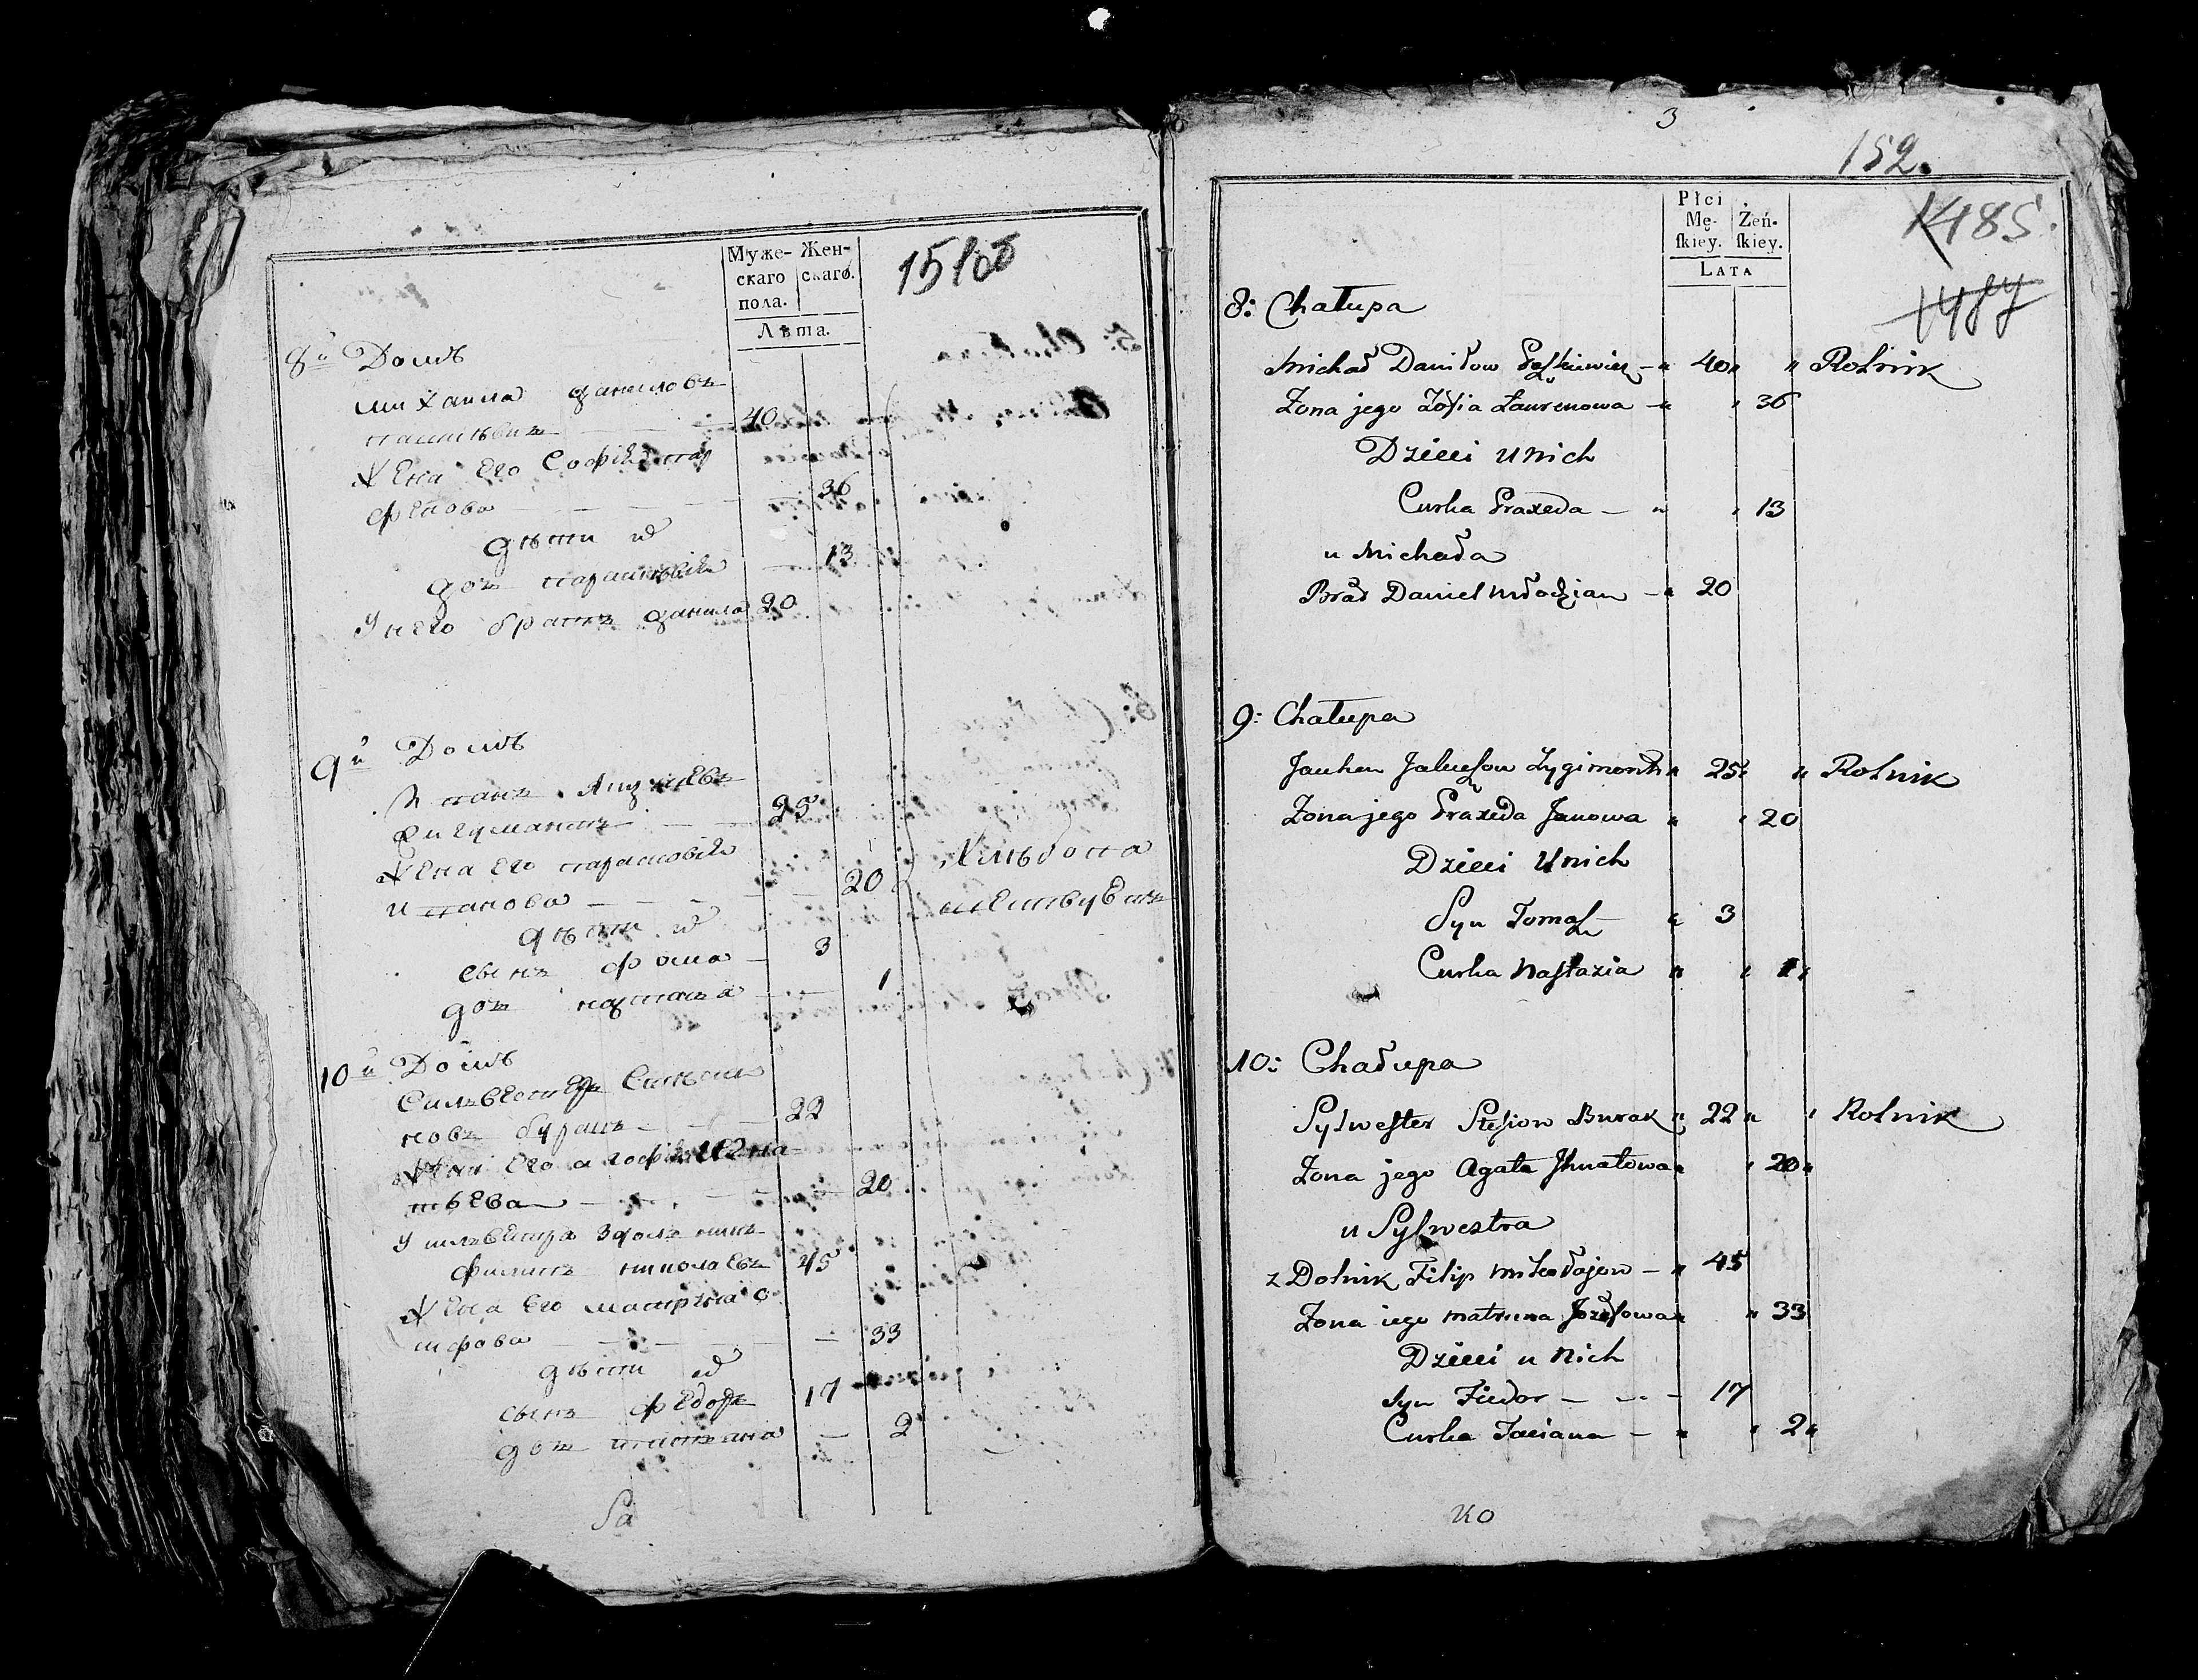 Муже- Жен-
скаго скаго.
пола.
Лѣта.
151об
8й Домъ
Михаила Даниловъ
40
Жена Его Софія пар
фенова 36
дѣти их
доч 13
У него братъ данила 20
9й Домъ
25
Жена Его парасковія
ипанова 20
Хлѣбопа
шествуетъ
дѣти их
сынъ фома 3
доч настазя 1
10й Домъ
Силвестеръ
новъ буракъ 22
Жена Его агафія игна
тьева 20
У силвестра здолникъ
филипъ николаевъ 45
Жена Его матруна о
сифова 33
дѣти их
сынъ федоръ 17
доч татяна 2
Sa
3
152.
1485.
Płci
Mę- Żeń-
ſkiey. ſkiey.
LATA
8: Chałupa
Michał Daniłow Paſzkiewicz 40 Rolnik
Żona jego Zofia Laurenowa 36
Dzieci u nich
Curka Praxeda 13
u Michała
Brat Daniel młodzian 20
9: Chałupa
25 Rolnik
Żona jego Praxeda Janowa 20
Dzieci u nich
Syn Tomaſz 3
Curka Naſtazia 1
10: Chałupa
Sylweſter Burak 22 Rolnik
Żona jego Agata Ihnatowa 20
u Sylwestra
zDolnik Filip Mikołajow 45
Żona iego Matruna Jozefowa 33
Dzieci u nich
Syn Fiedor 17
Curka Taciana 2
ко